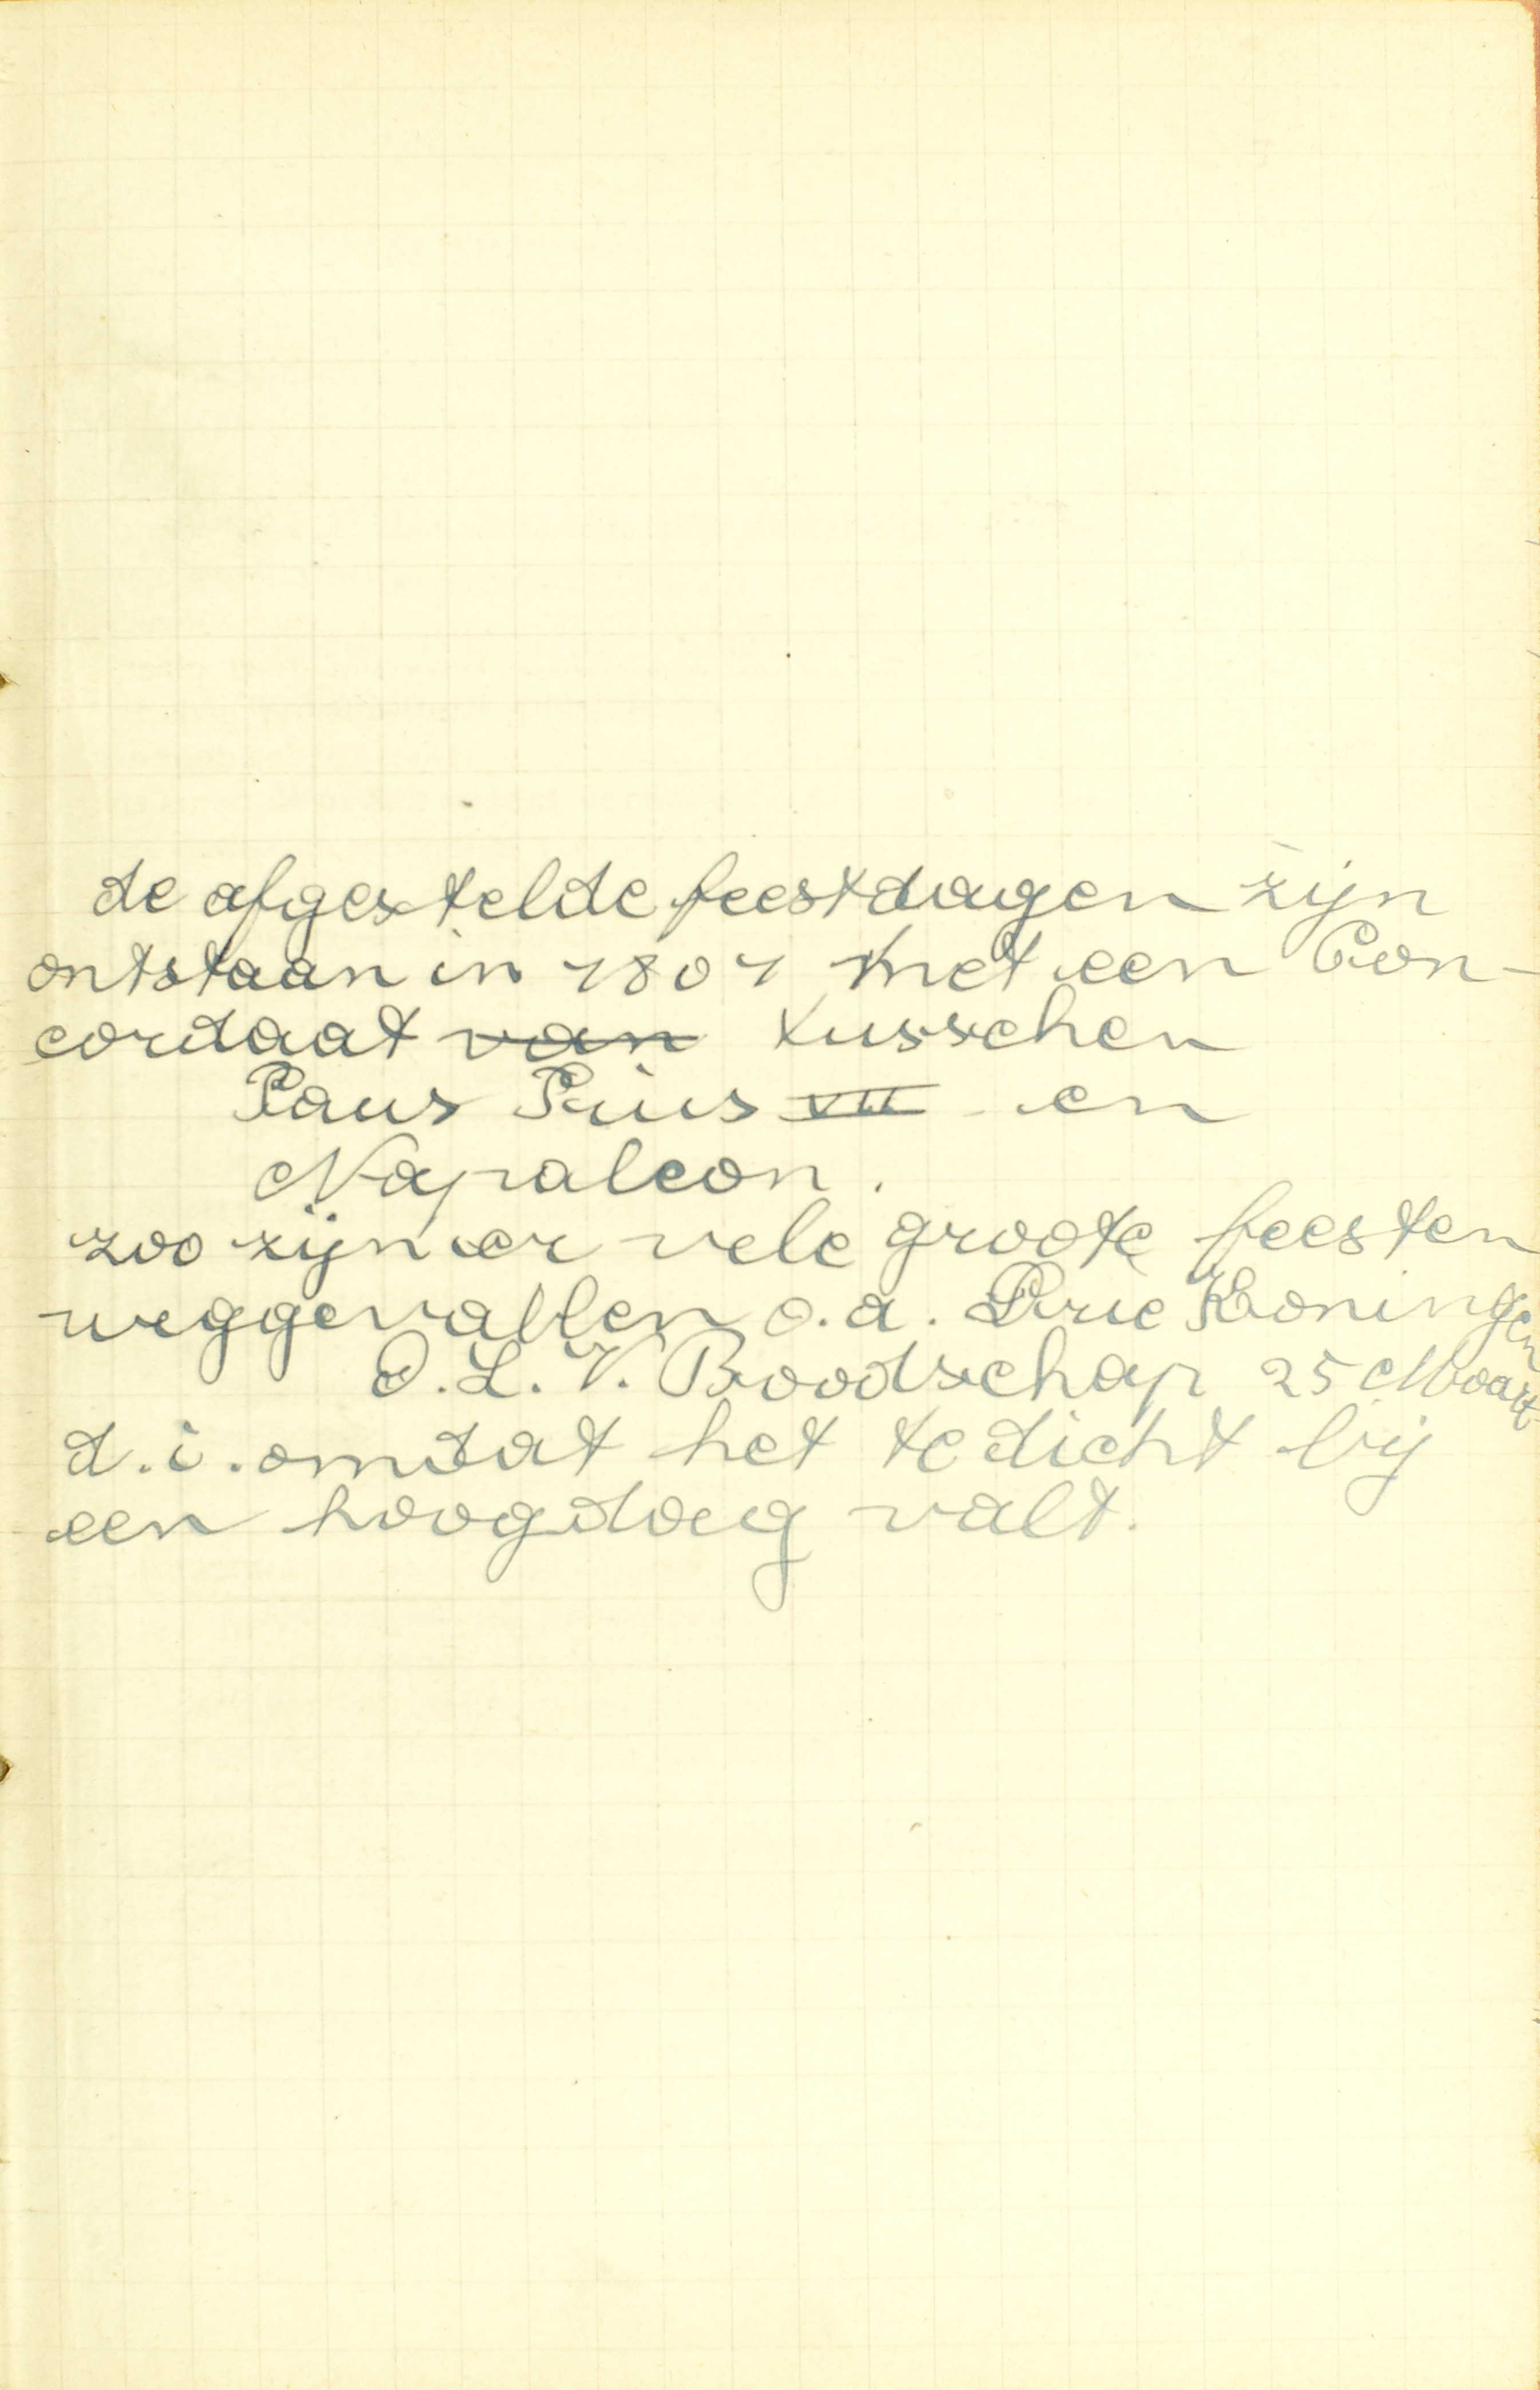 de afgestelde feestdagen zijn
ontstaan in 1801 met een Con-
cordaat van tusschen
Paus Pius VII en
Napoleon.
zoo zijn er vele groote feesten
weggevallen o.a. Drie Koningen
O.L.V. Boodschap 25 Maart
d.i. omdat het te dicht bij
een hoogdag valt.